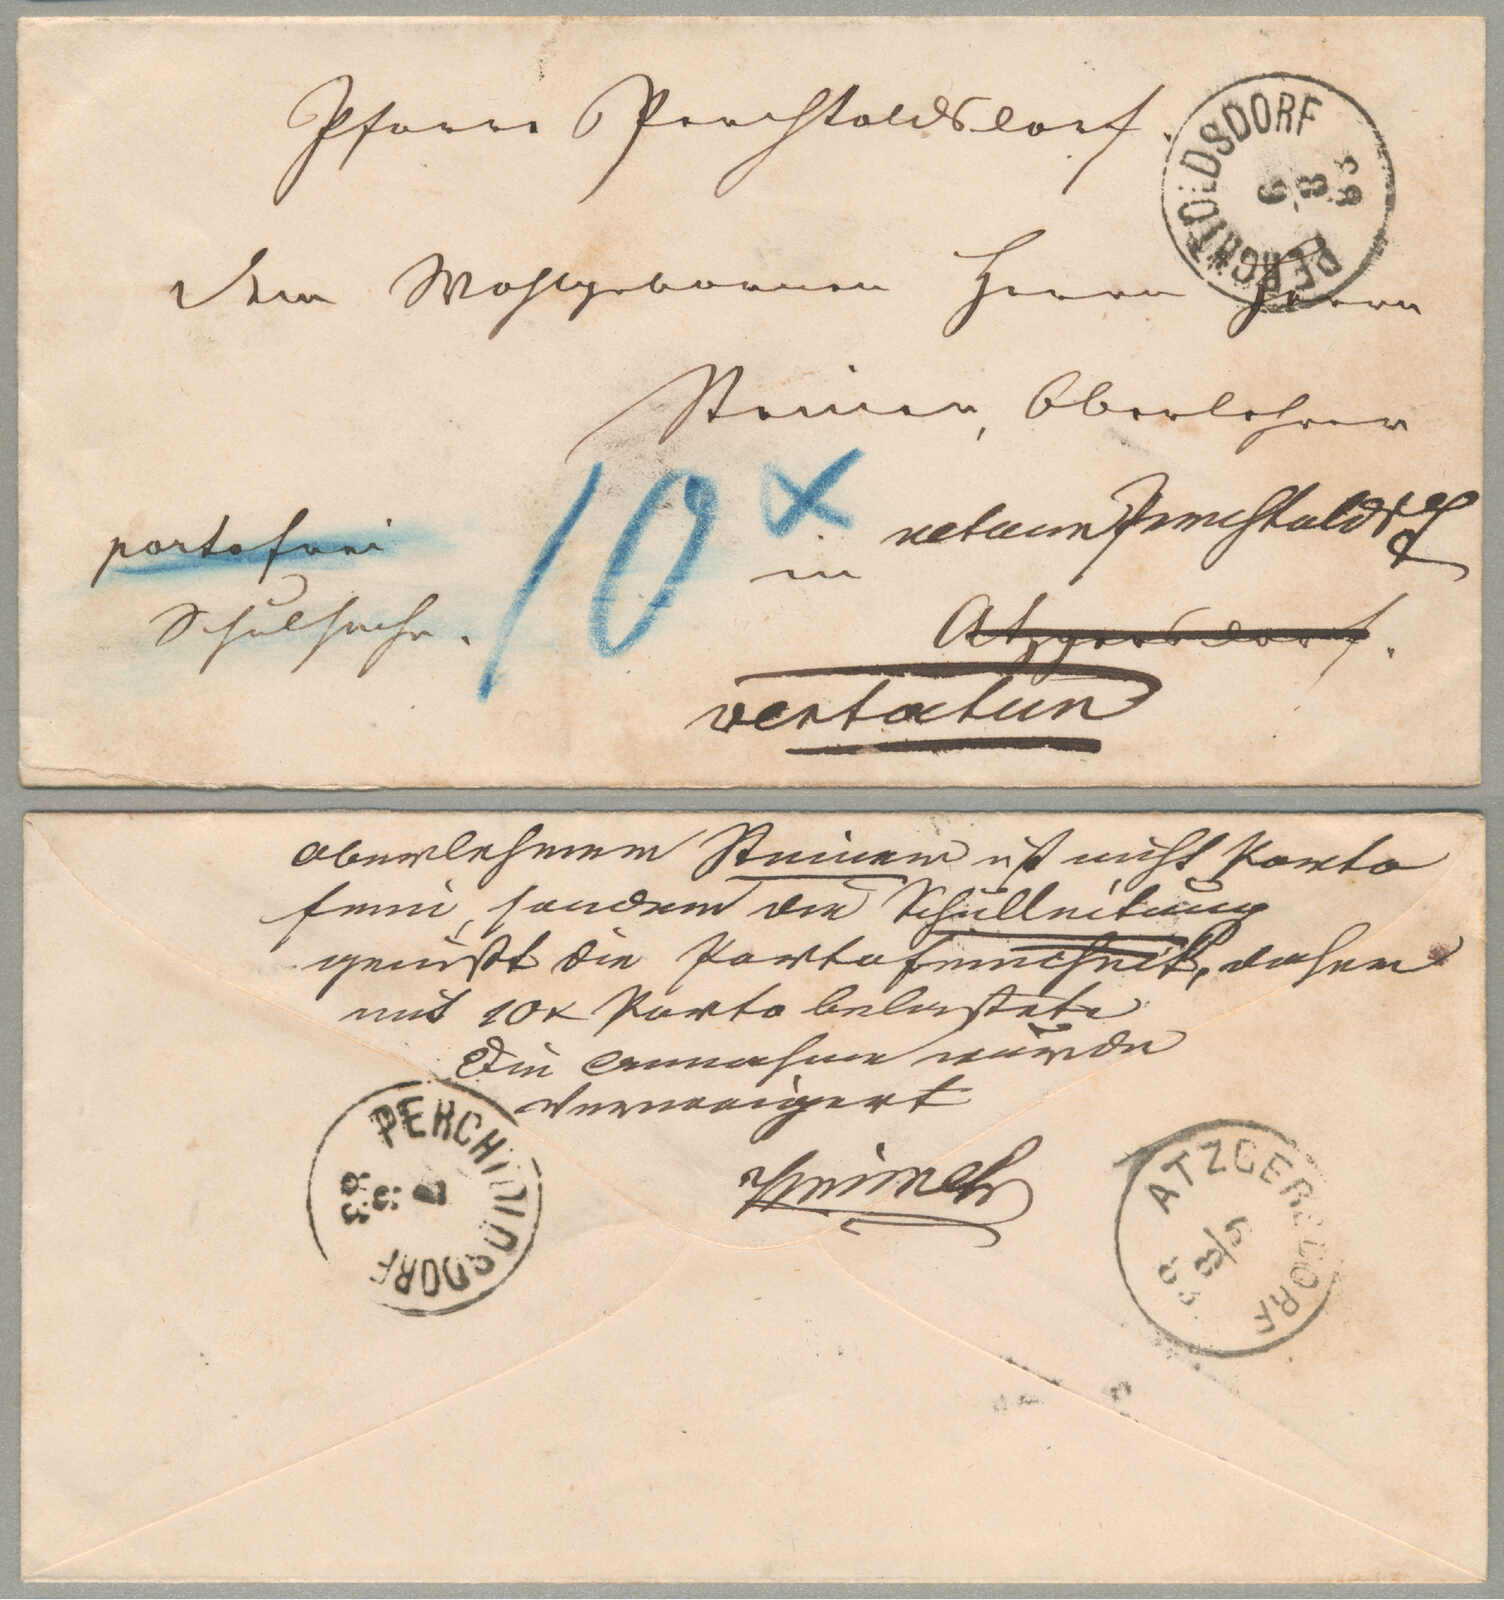 Pfarre Perchtoldsdorf.
PERCHTOLDSDORF
6
8
83
Dem Wohlgebornen Herrn Herrn
Steiner, Oberlehrer
10 x
retour Perchtoldsdf
in
portofrei
Schulsache.
Atzgersdorf.
PERCHTOLDSDORF
7
8
83
oberlehrer Steiner ist nicht Porto
frei, sondern die Schulleitung
genießt die Portofreiheit, daher
mit 10x Porto belastete
Die Annahme wurde
verweigert
ATZGERSDORF
8/